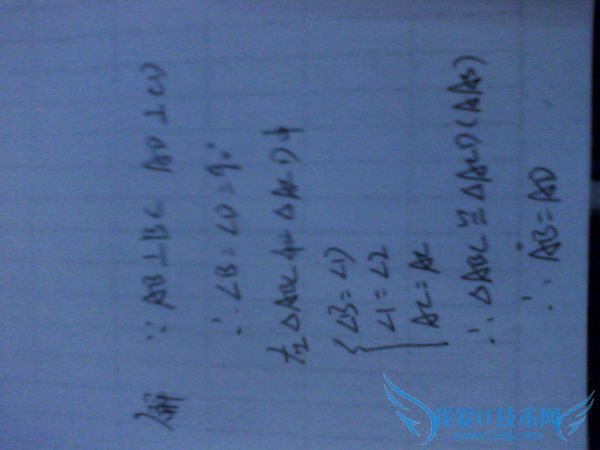 解 ∵ AB⊥BC AD⊥CD
∴ ∠B=∠D=90°
在△ABC和△ACD中
{∠B=∠D
∠1=∠2
AC=AC
∴ △ABC≌△ACD(AAS)
∴ AB=AD
我爱IT技术网